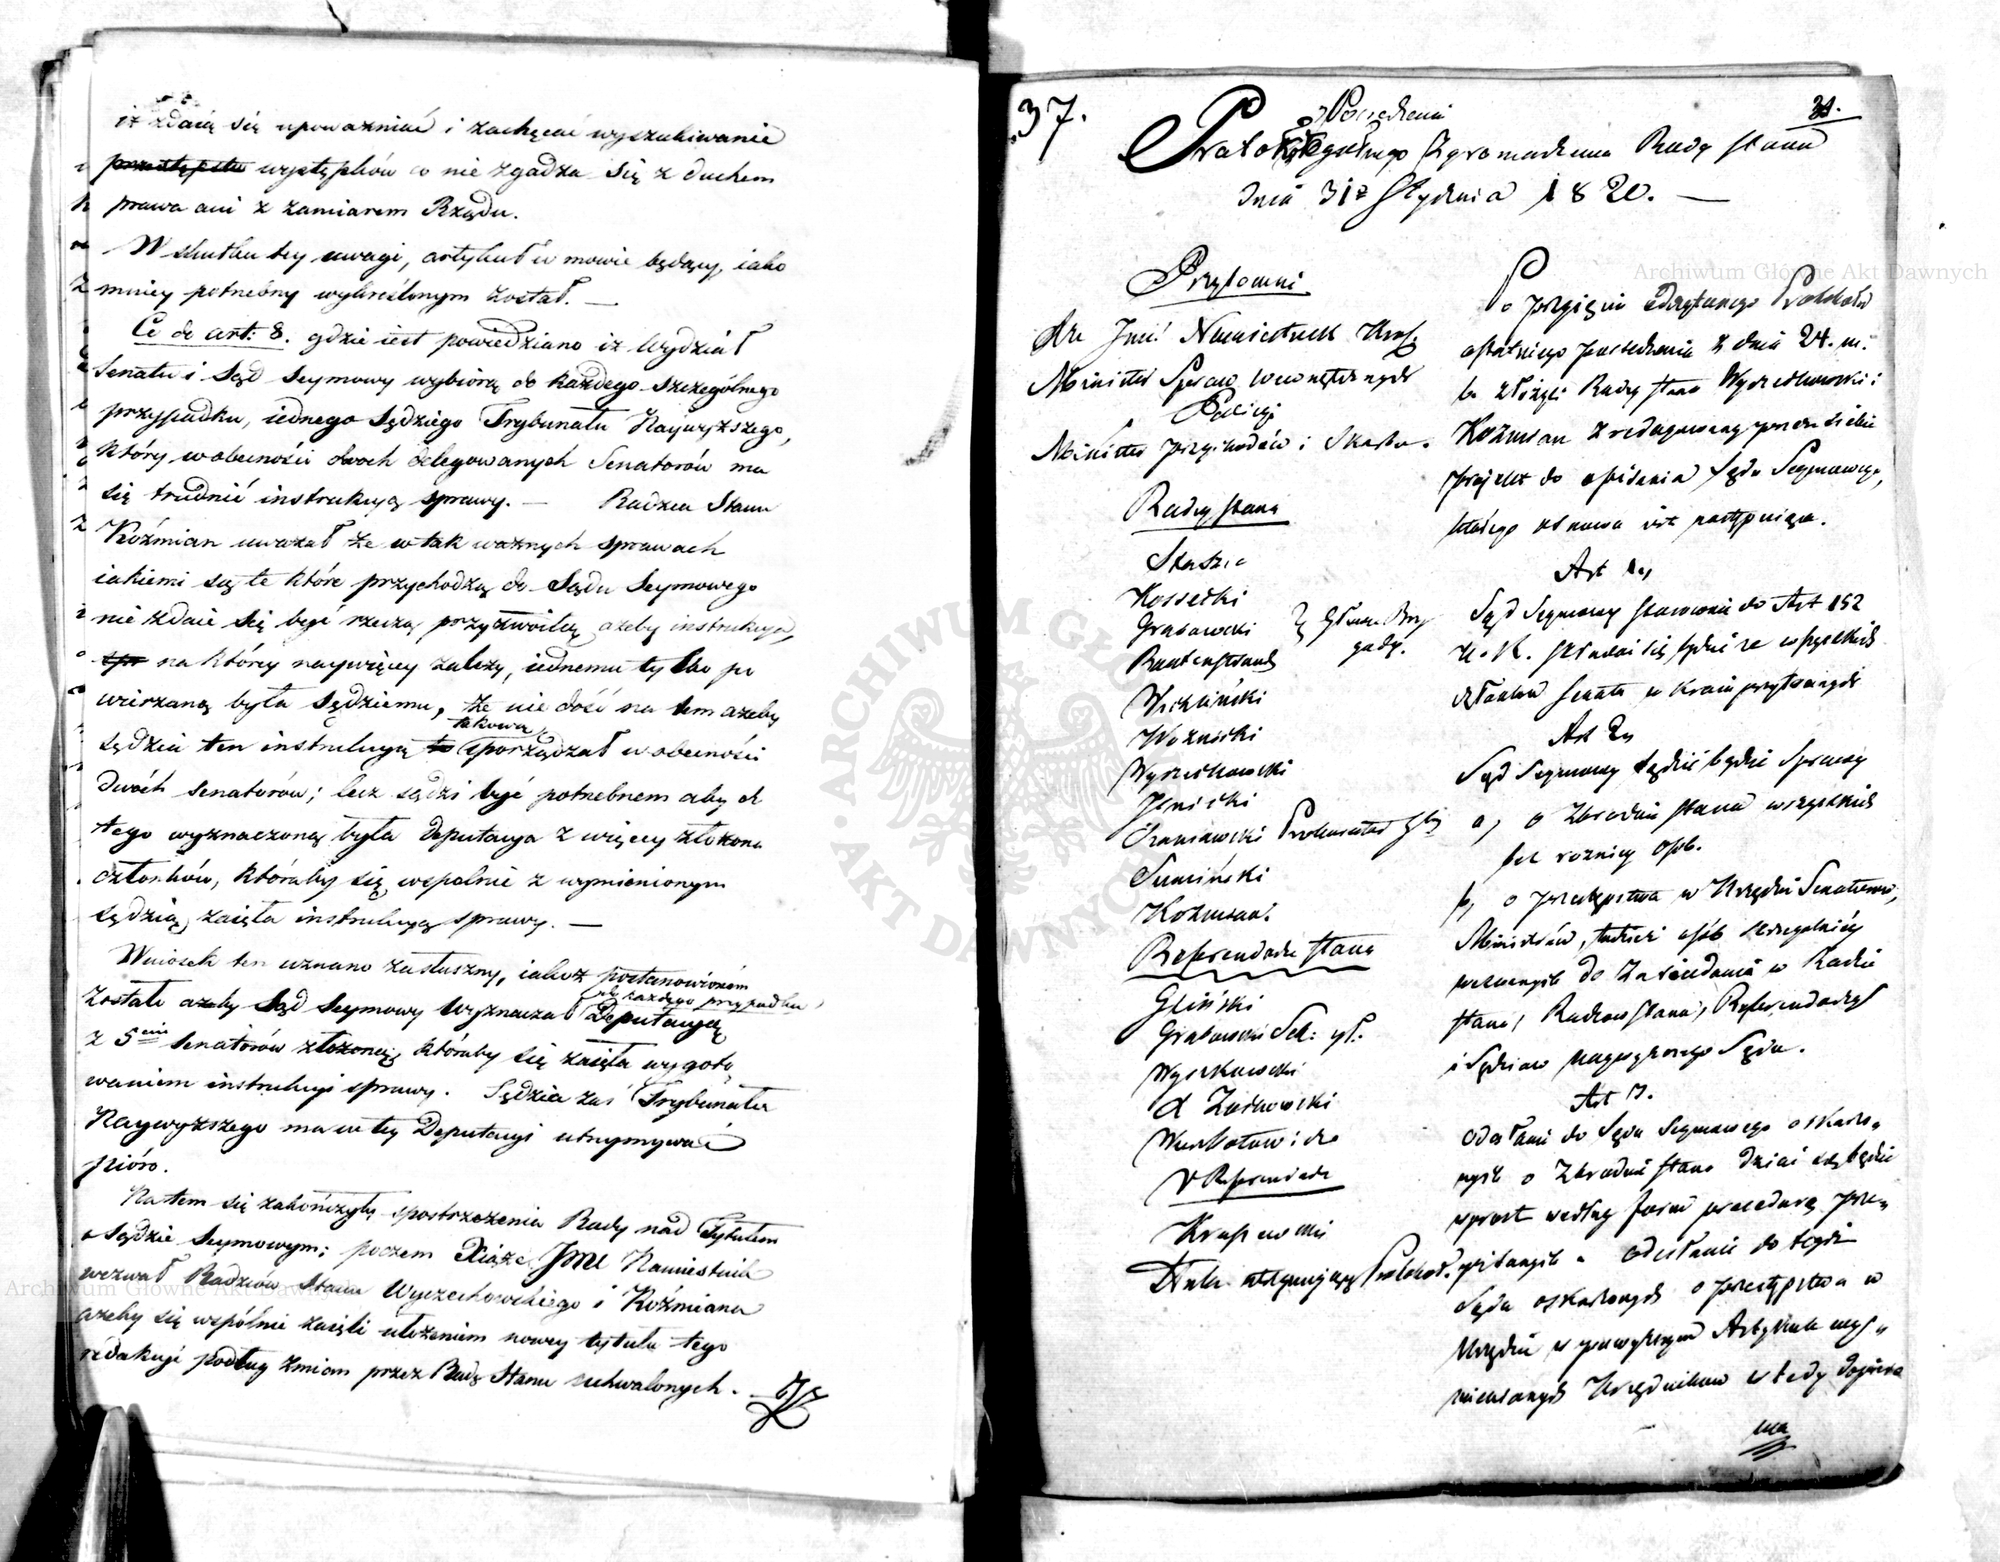 iż zdaią się upoważniać i zachęcać wyszukiwanie
przestępstw występków co nie zgadza się z duchem
prawa ani z zamiarem Rządu.
W skutku tey uwagi, artykuł w mowie będący, iako
mniey potrzebny wykreślonym został. —
Co do art: 8. gdzie iest powiedziano iż Wydział
Senatu i Sąd Seymowy wybiorą do każdego szczególnego
przypadku, iednego Sędziego Trybunału Naywyższego,
który w obecności dwoch delegowanych Senatorów ma
się trudnić instrukcyą sprawy. — Radzca Stanu
Koźmian uważał że w tak ważnych sprawach
iakiemi są te które przychodzą do Sądu Seymowego
nie zdaie się być rzeczą przyzwoitą ażeby instrukcya,
spr na którey naywięcey zależy, iednemu tylko po
wierzaną była Sędziemu, że nie dość na tem ażeby
takową
sędzia ten instrukcyą to sporządzał w obecności
dwóch senatorów; lecz sądzi być potrzebnem aby do
tego wyznaczoną była deputacya z więcey złożona
członków, któraby się wspolnie z wymienionym
sędzią zaięła instrukcyą sprawy. —
Wniosek ten uznano za słuszny, iakoż postanowionem
do każdego przypadku
zostało ażeby Sąd Seymowy wyznaczał Deputacyą
z 5ciu Senatorów złożoną, któraby się zaięła wygoto
waniem instrukcyi sprawy. Sędzia zaś Trybunału
Naywyższego ma w tey Deputacyi utrzymywać
pióro.
Na tem się zakończyły spostrzeżenia Rady nad Tytułem
o Sądzie Seymowym; poczem Xiąże Jmć Namiestnik
wezwał Radzców Stanu Wyczechowskiego i Koźmiana
ażeby się wspólnie zaięli ułożeniem nowey tytułu tego
redakcyi podług zmian przez Radę Stanu uchwalonych.
37.
31.
Posiedzenia
Protokół Ogólnego Zgromadzenia Rady Stanu
dnia 31 Stycznia 1820. —
Przytomni.
Xże Jmć Namiestnik Król.
Minister Spraw Wewnętrznych
Policyi
Minister Przychodów i Skarbu.
Radcy Stanu
Staszic
Kossecki
Grabowski
Woźnicki
Wyczechowski
Lipiński
Szaniawski Prokurator
Sumiński
Koźmian.
Referendarze Stanu
Gliński
Grabowski Sek: gł.
Wyczechowski
V Referendarz
Krajewski
Po przyjęciu odczytanego Protokołu
ostatniego posiedzenia z dnia 24. m.
b. złożyli Radcy Stanu Wyczechowski i
Koźmian zredagowany przez siebie
projekt do opisania Sądu Seymowego,
którego osnowa iest następuiąca.
Art 1.
Sąd Seymowy stosownie do Art 152
U. K. składać się będzie ze wszystkich
członków Senatu w Kraiu przytomnych
Art 2.
Sąd Seymowy sądzić będzie Sprawy
a, o Zbrodnie stanu wszystkich
bez rożnicy osób.
b, o przestępstwa w Urzędzie Senatorów,
Ministrów, tudzież osób szczególniey
wezwanych do Zasiadania w Radzie
stanu, Radzców stanu, Referendarzy
i Sędziów naywyższego Sądu.
Art 3.
Odesłanie do Sądu Seymowego oskarżo-
nych o Zbrodnie stanu dziać się będzie
wprost według form procedurą prze-
pisanych a odesłanie do tegoż
Sądu oskarżonych o przestępstwa w
Urzędzie w powyższym Artykule wy-
mienionych Urzędników wtedy dopiero
ma
Archiwum Główne Akt Dawnych
Archiwum Główne Akt Dawnych
ARCHIWUM GŁÓWNE AKT DAWNYCH